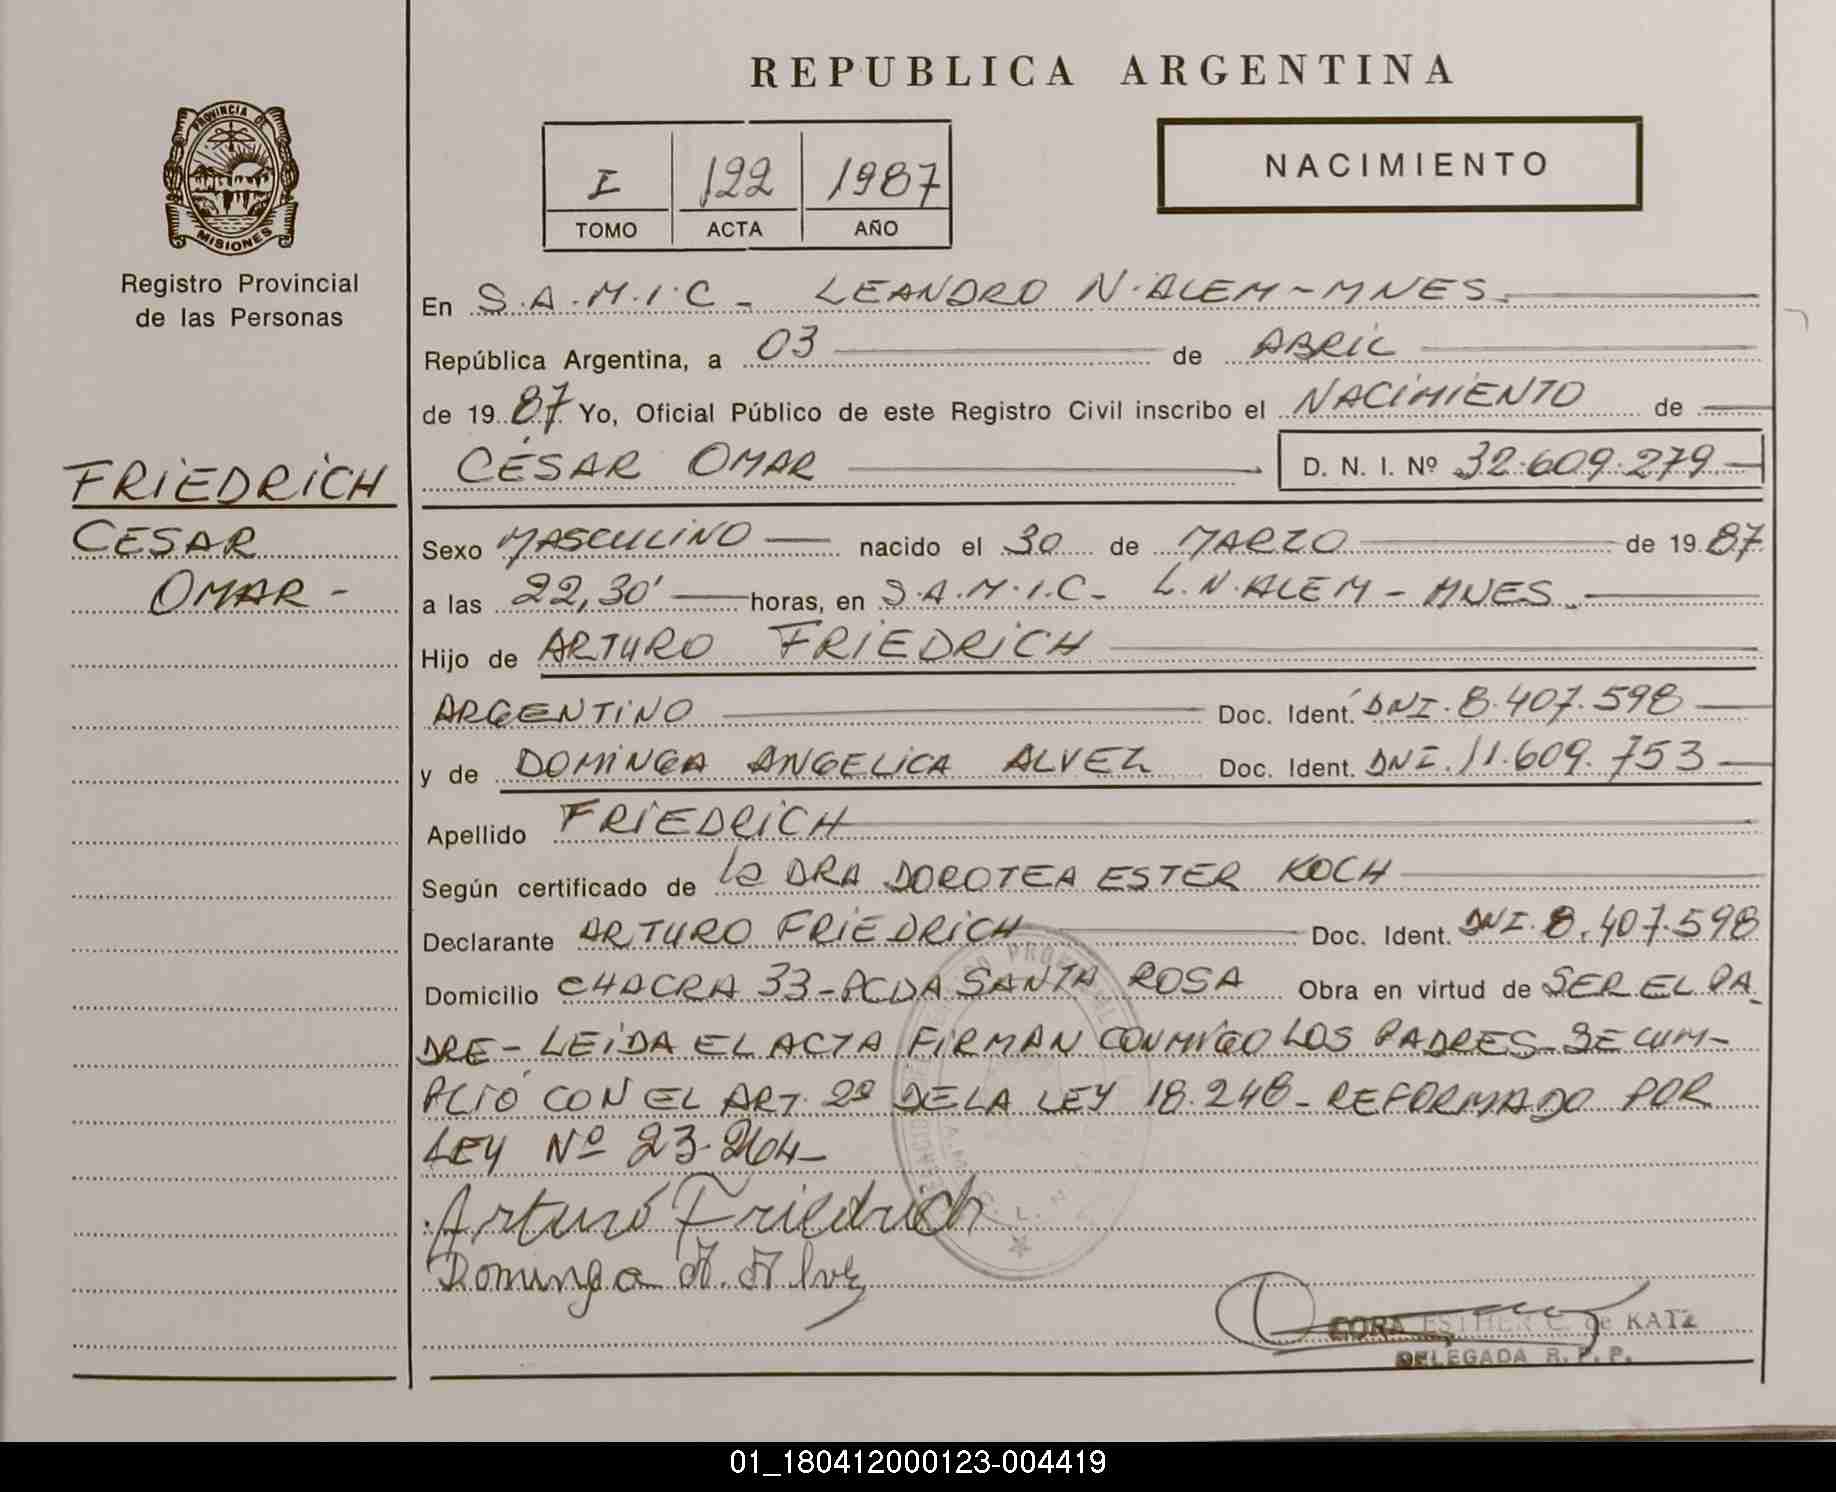 REPUBLICA ARGENTINA
PROVINCIA DE
MISIONES
Registro Provincial
de las Personas
I 122 1987
TOMO ACTA AÑO
NACIMIENTO
FRIEDRICH
CESAR
OMAR -
En S.A.M.I.C - LEANDRO N. ALEM - MNES.
República Argentina, a 03 de ABRIL
de 19 87 Yo, Oficial Público de este Registro Civil inscribo el NACIMIENTO de
CÉSAR OMAR D. N. I. Nº 32.609.279
Sexo MASCULINO nacido el 30 de MARZO de 19 87
a las 22,30' horas, en S.A.M.I.C - L.N. ALEM - MNES.
Hijo de ARTURO FRIEDRICH
ARGENTINO Doc. Ident. DNI. 8.407.598
y de DOMINGA ANGELICA ALVEZ Doc. Ident. DNI. 11.609.753
Apellido FRIEDRICH
Según certificado de la DRA DOROTEA ESTER KOCH
Declarante ARTURO FRIEDRICH Doc. Ident. DNI. 8.407.598
Domicilio CHACRA 33 - PCDA SANTA ROSA Obra en virtud de SER EL PA
DRE - LEIDA EL ACTA FIRMAN CONMIGO LOS PADRES - SE CUM-
PLIÓ CON EL ART. 2º DE LA LEY 18.248 - REFORMADO POR
LEY Nº 23.264 -
Arturo Friedrich
Dominga A. Alvez
CORA ESTHER C. de KATZ
DELEGADA R. P. P.
01_180412000123-004419